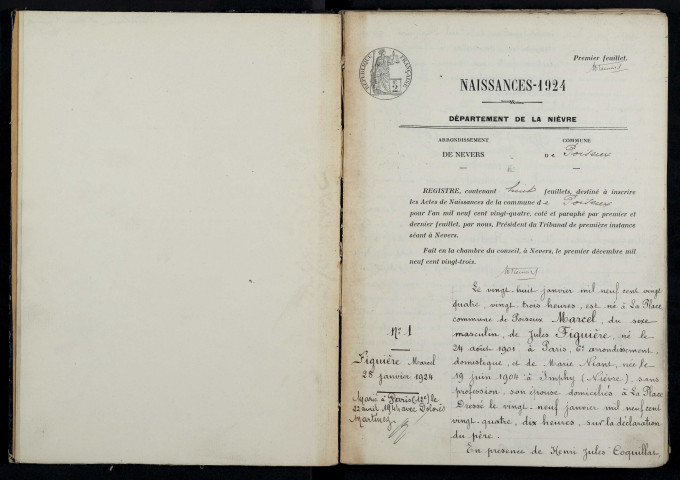 Premier feuillet.
RÉPUBLIQUE FRANÇAISE
NAISSANCES-1924
DÉPARTEMENT DE LA NIÈVRE
ARRONDISSEMENT
DE NEVERS
COMMUNE
De Poiseux
REGISTRE, contenant huit feuillets, destiné à inscrire
les Actes de Naissances de la commune de Poiseux
pour l'an mil neuf cent vingt-quatre, coté et paraphé par premier et
dernier feuillet, par nous, Président du Tribunal de première instance
séant à Nevers.
Fait en la chambre du conseil, à Nevers, le premier décembre mil
neuf cent vingt-trois.
N° 1
Figuière Marcel
28 janvier 1924
Marié à Paris (12e) le
22 avril 1944 avec Dolorès
Martinez
Le vingt huit janvier mil neuf cent vingt
quatre, vingt trois heures, est né à La Place
commune de Poiseux Marcel, du sexe
masculin, de Jules Figuière, né le
24 août 1901 à Paris, 6e arrondissement,
domestique, et de Marie Niant, née le
19 juin 1904 à Imphy (Nièvre), sans
profession, son épouse domiciliés à La Place
Dressé le vingt-neuf janvier mil neuf cent
vingt-quatre, dix heures, sur la déclaration
du père.
En présence de Henri Jules Coquillat,